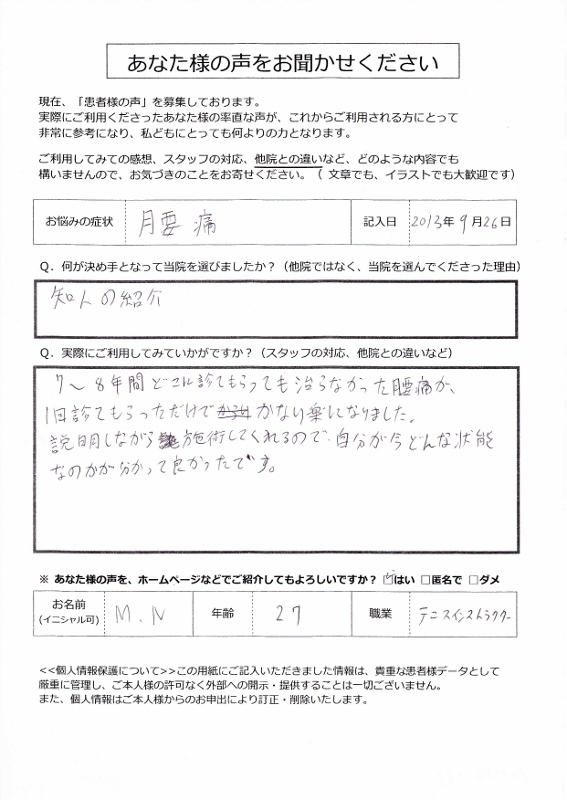 あなた様の声をお聞かせください
現在、「患者様の声」を募集しております。
実際にご利用くださったあなた様の率直な声が、これからご利用される方にとって
非常に参考になり、私どもにとっても何よりの力となります。
ご利用してみての感想、スタッフの対応、他院との違いなど、どのような内容でも
構いませんので、お気づきのことをお寄せください。（ 文章でも、イラストでも大歓迎です）
お悩みの症状 腰痛 記入日 2013年 9月26日
Q．何が決め手となって当院を選びましたか？（他院ではなく、当院を選んでくださった理由）
知人の紹介
Q．実際にご利用してみていかがですか？（スタッフの対応、他院との違いなど）
7〜8年間どこに診てもらっても治らなかった腰痛が、
1回診てもらっただけで かない楽になりました。
説明しながら 施術してくれるので、自分が今どんな状態
なのかが分かって良かったです。
※ あなた様の声を、ホームページなどでご紹介してもよろしいですか？ ☑はい □匿名で □ダメ
お名前 M.N 年齢 27 職業 テニスインストラクター
(イニシャル可)
<<個人情報保護について>>この用紙にご記入いただきました情報は、貴重な患者様データとして
厳重に管理し、ご本人様の許可なく外部への開示・提供することは一切ございません。
また、個人情報はご本人様からのお申出により訂正・削除いたします。